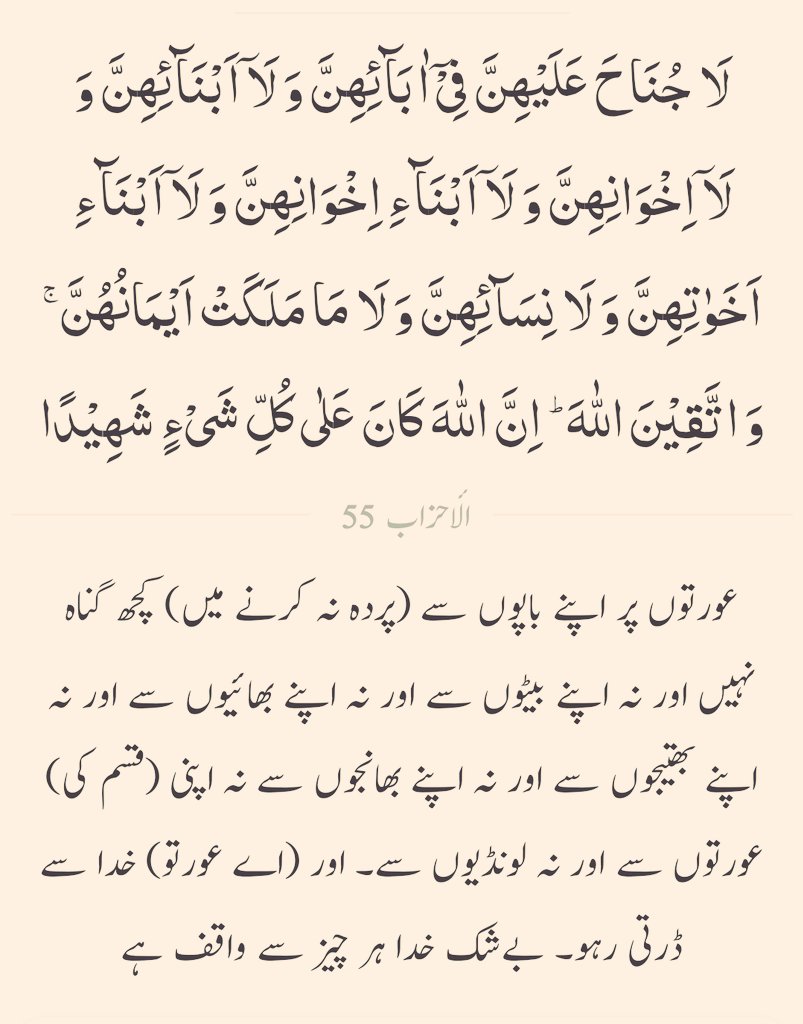 لَا جُنَاحَ عَلَيْهِنَّ فِيْۤ اٰبَآئِهِنَّ وَ لَاۤ اَبْنَآئِهِنَّ وَ
لَاۤ اِخْوَانِهِنَّ وَ لَاۤ اَبْنَآءِ اِخْوَانِهِنَّ وَ لَاۤ اَبْنَآءِ
اَخَوٰتِهِنَّ وَ لَا نِسَآئِهِنَّ وَ لَا مَا مَلَكَتْ اَيْمَانُهُنَّ ۚ
وَ اتَّقِيْنَ اللّٰهَ ؕ اِنَّ اللّٰهَ كَانَ عَلٰى كُلِّ شَیْءٍ شَهِيْدًا
الۡاَحزَاب 55
عورتوں پر اپنے باپوں سے (پردہ نہ کرنے میں) کچھ گناہ
نہیں اور نہ اپنے بیٹوں سے اور نہ اپنے بھائیوں سے اور نہ
اپنے بھتیجوں سے اور نہ اپنے بھانجوں سے نہ اپنی (قسم کی)
عورتوں سے اور نہ لونڈیوں سے۔ اور (اے عورتو) خدا سے
ڈرتی رہو۔ بےشک خدا ہر چیز سے واقف ہے